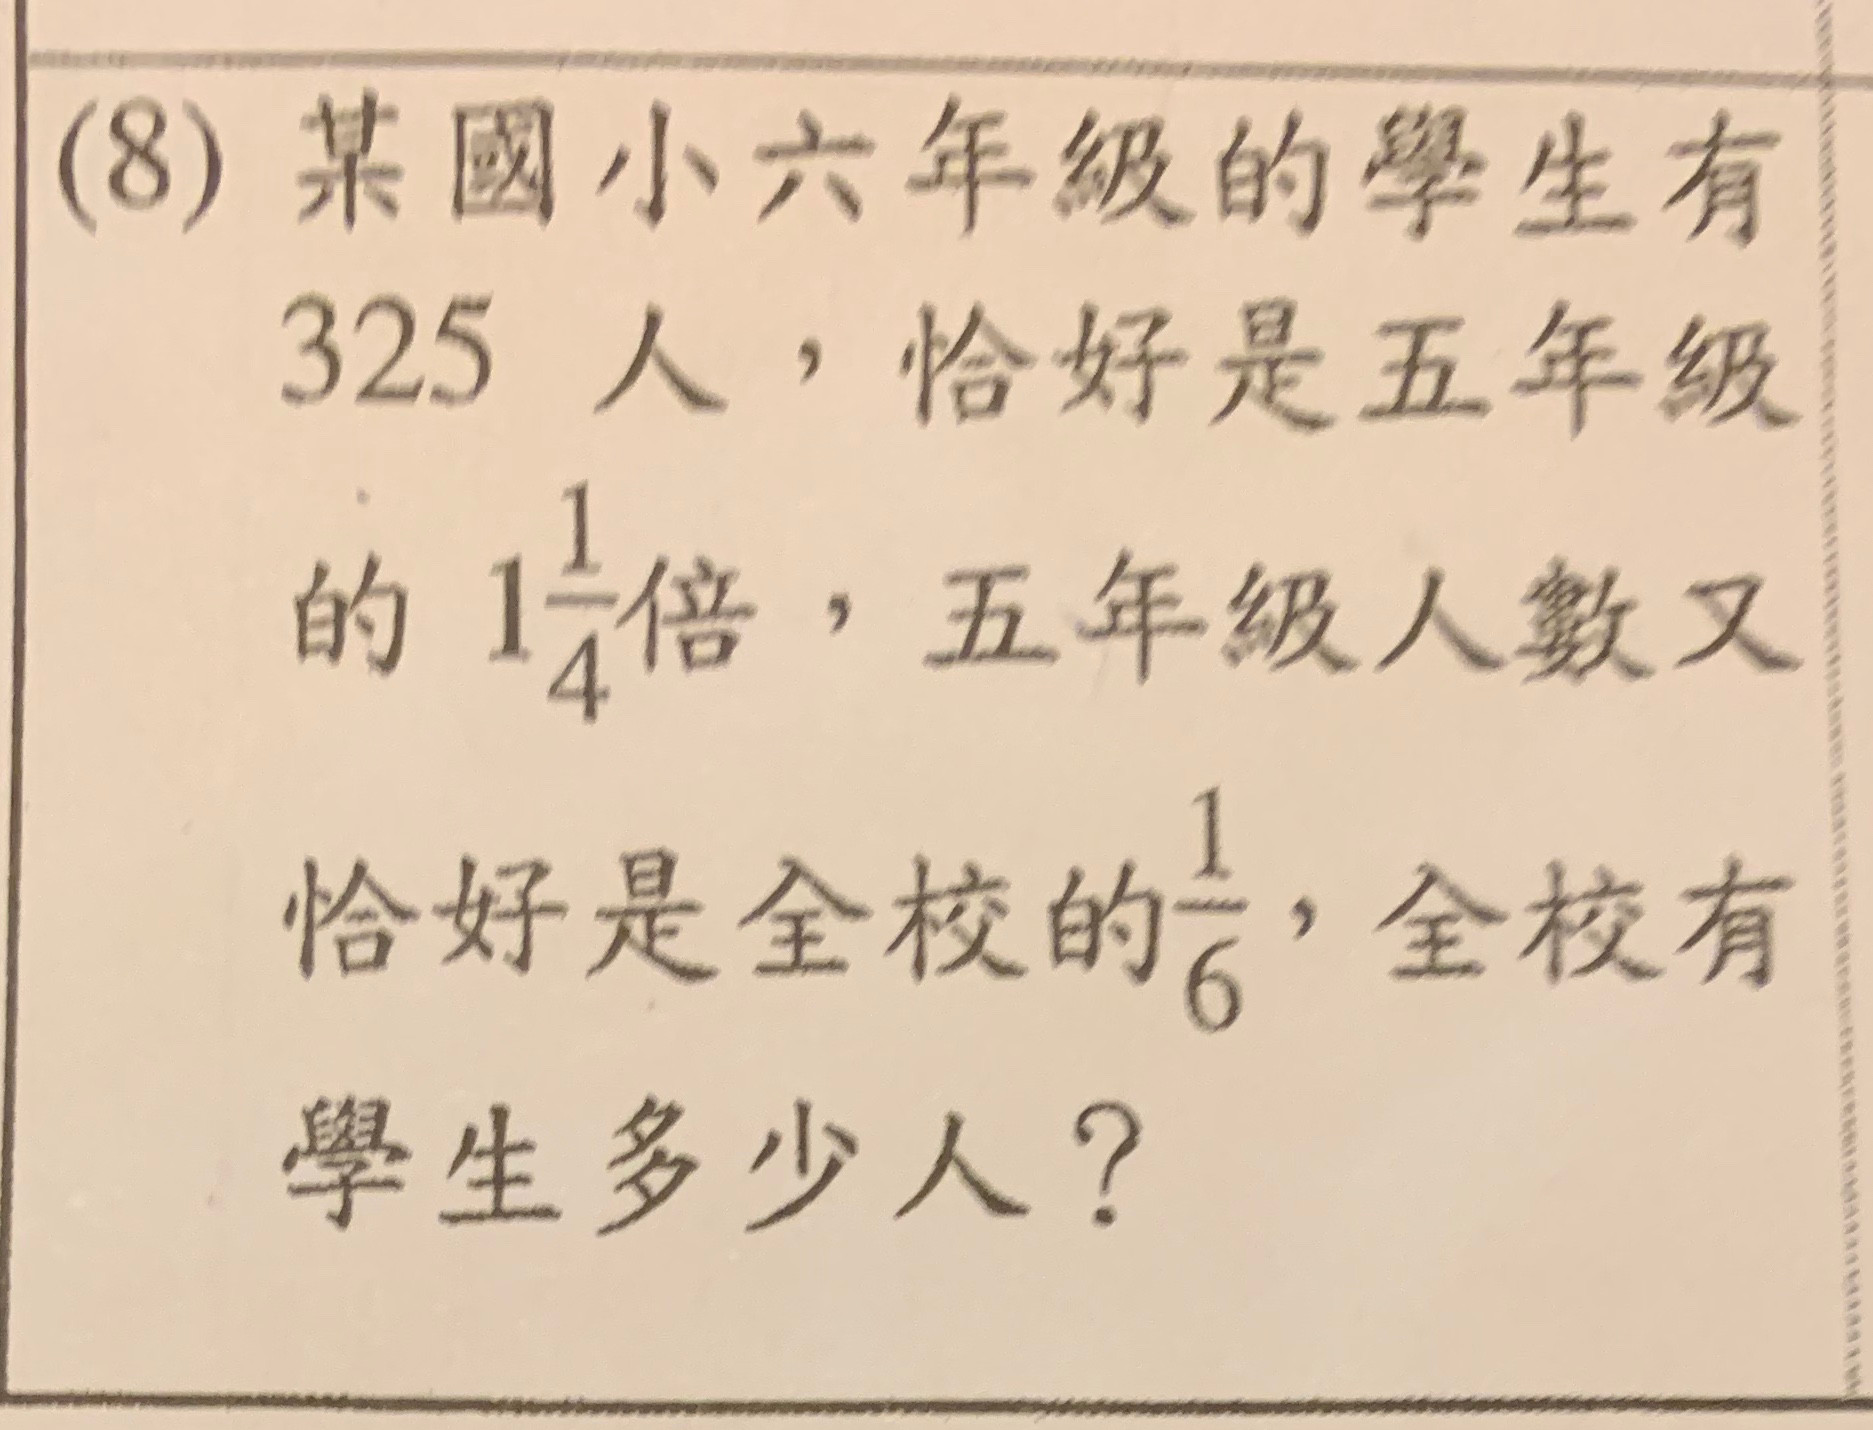 (8) 某國小六年級的學生有
325 人，恰好是五年級
的 1 1/4 倍，五年級人數又
恰好是全校的 1/6，全校有
學生多少人？